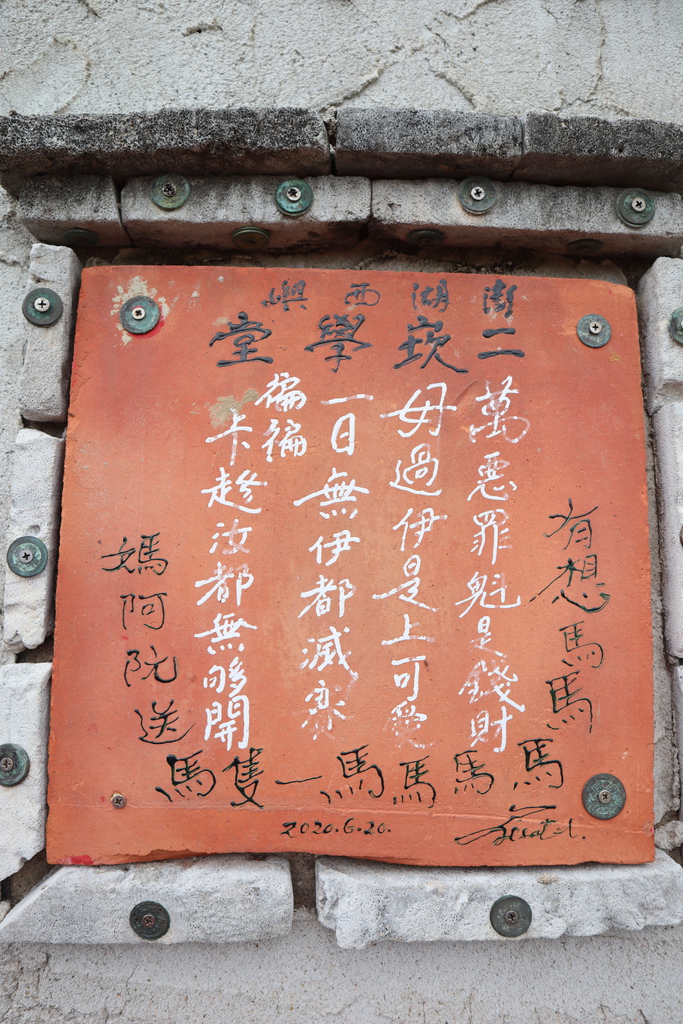 澎湖西嶼
二崁學堂
萬惡罪魁是錢財
毋過伊是上可愛
一日無伊都減
徧徧
卡趁汝都無夠開
有想馬馬
馬馬馬馬一隻馬
送阮阿媽
2020.6.20.